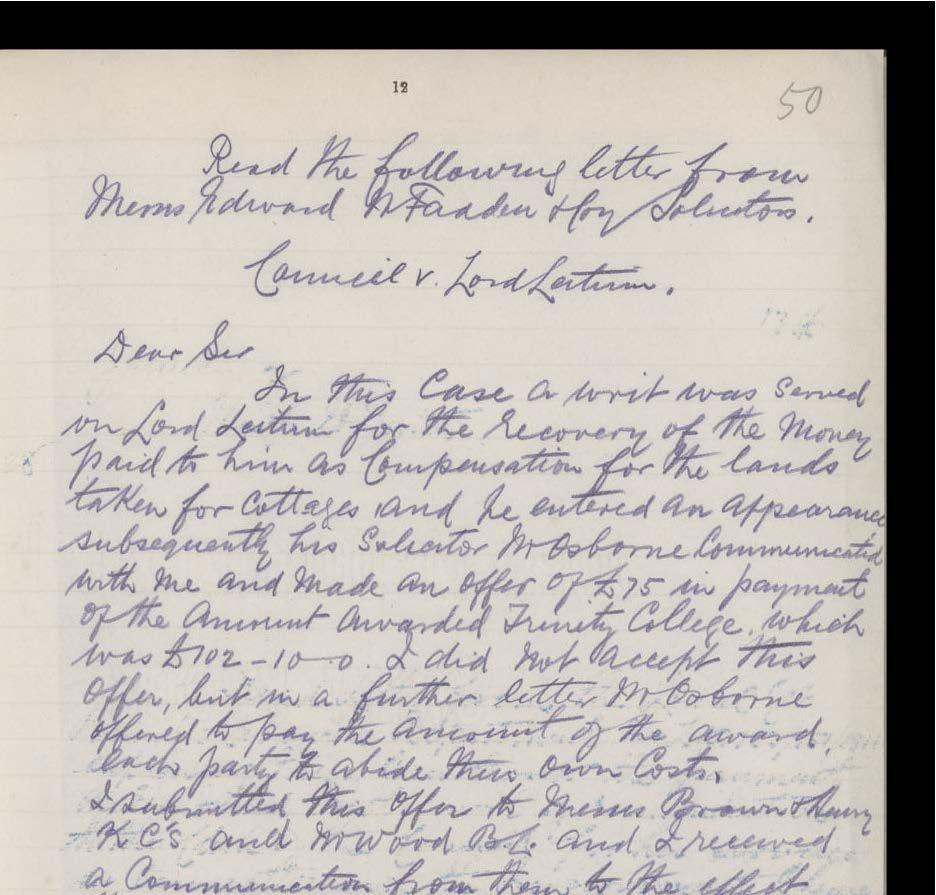 12
50
Read the following letter from
Messrs Edward McFadden & Coy Solicitors.
Council v. Lord Leitrim.
Dear Sir
In this Case a writ was served
on Lord Leitrim for the recovery of the Money
paid to him as Compensation for the lands
taken for Cottages, and he entered an appearance
subsequently his Solicitor Mr Osborne Communicated
with me and made an offer of £75 in payment
of the amount awarded Trinity College, which
was £102-10-0. I did not accept this
offer, but in a further letter Mr Osborne
offered to pay the amount of the award,
each party to abide their own Costs.
I submitted this offer to Messrs Brown & Henry
KCs and Mr Wood B.L. and I received
a Communication from them to the effect